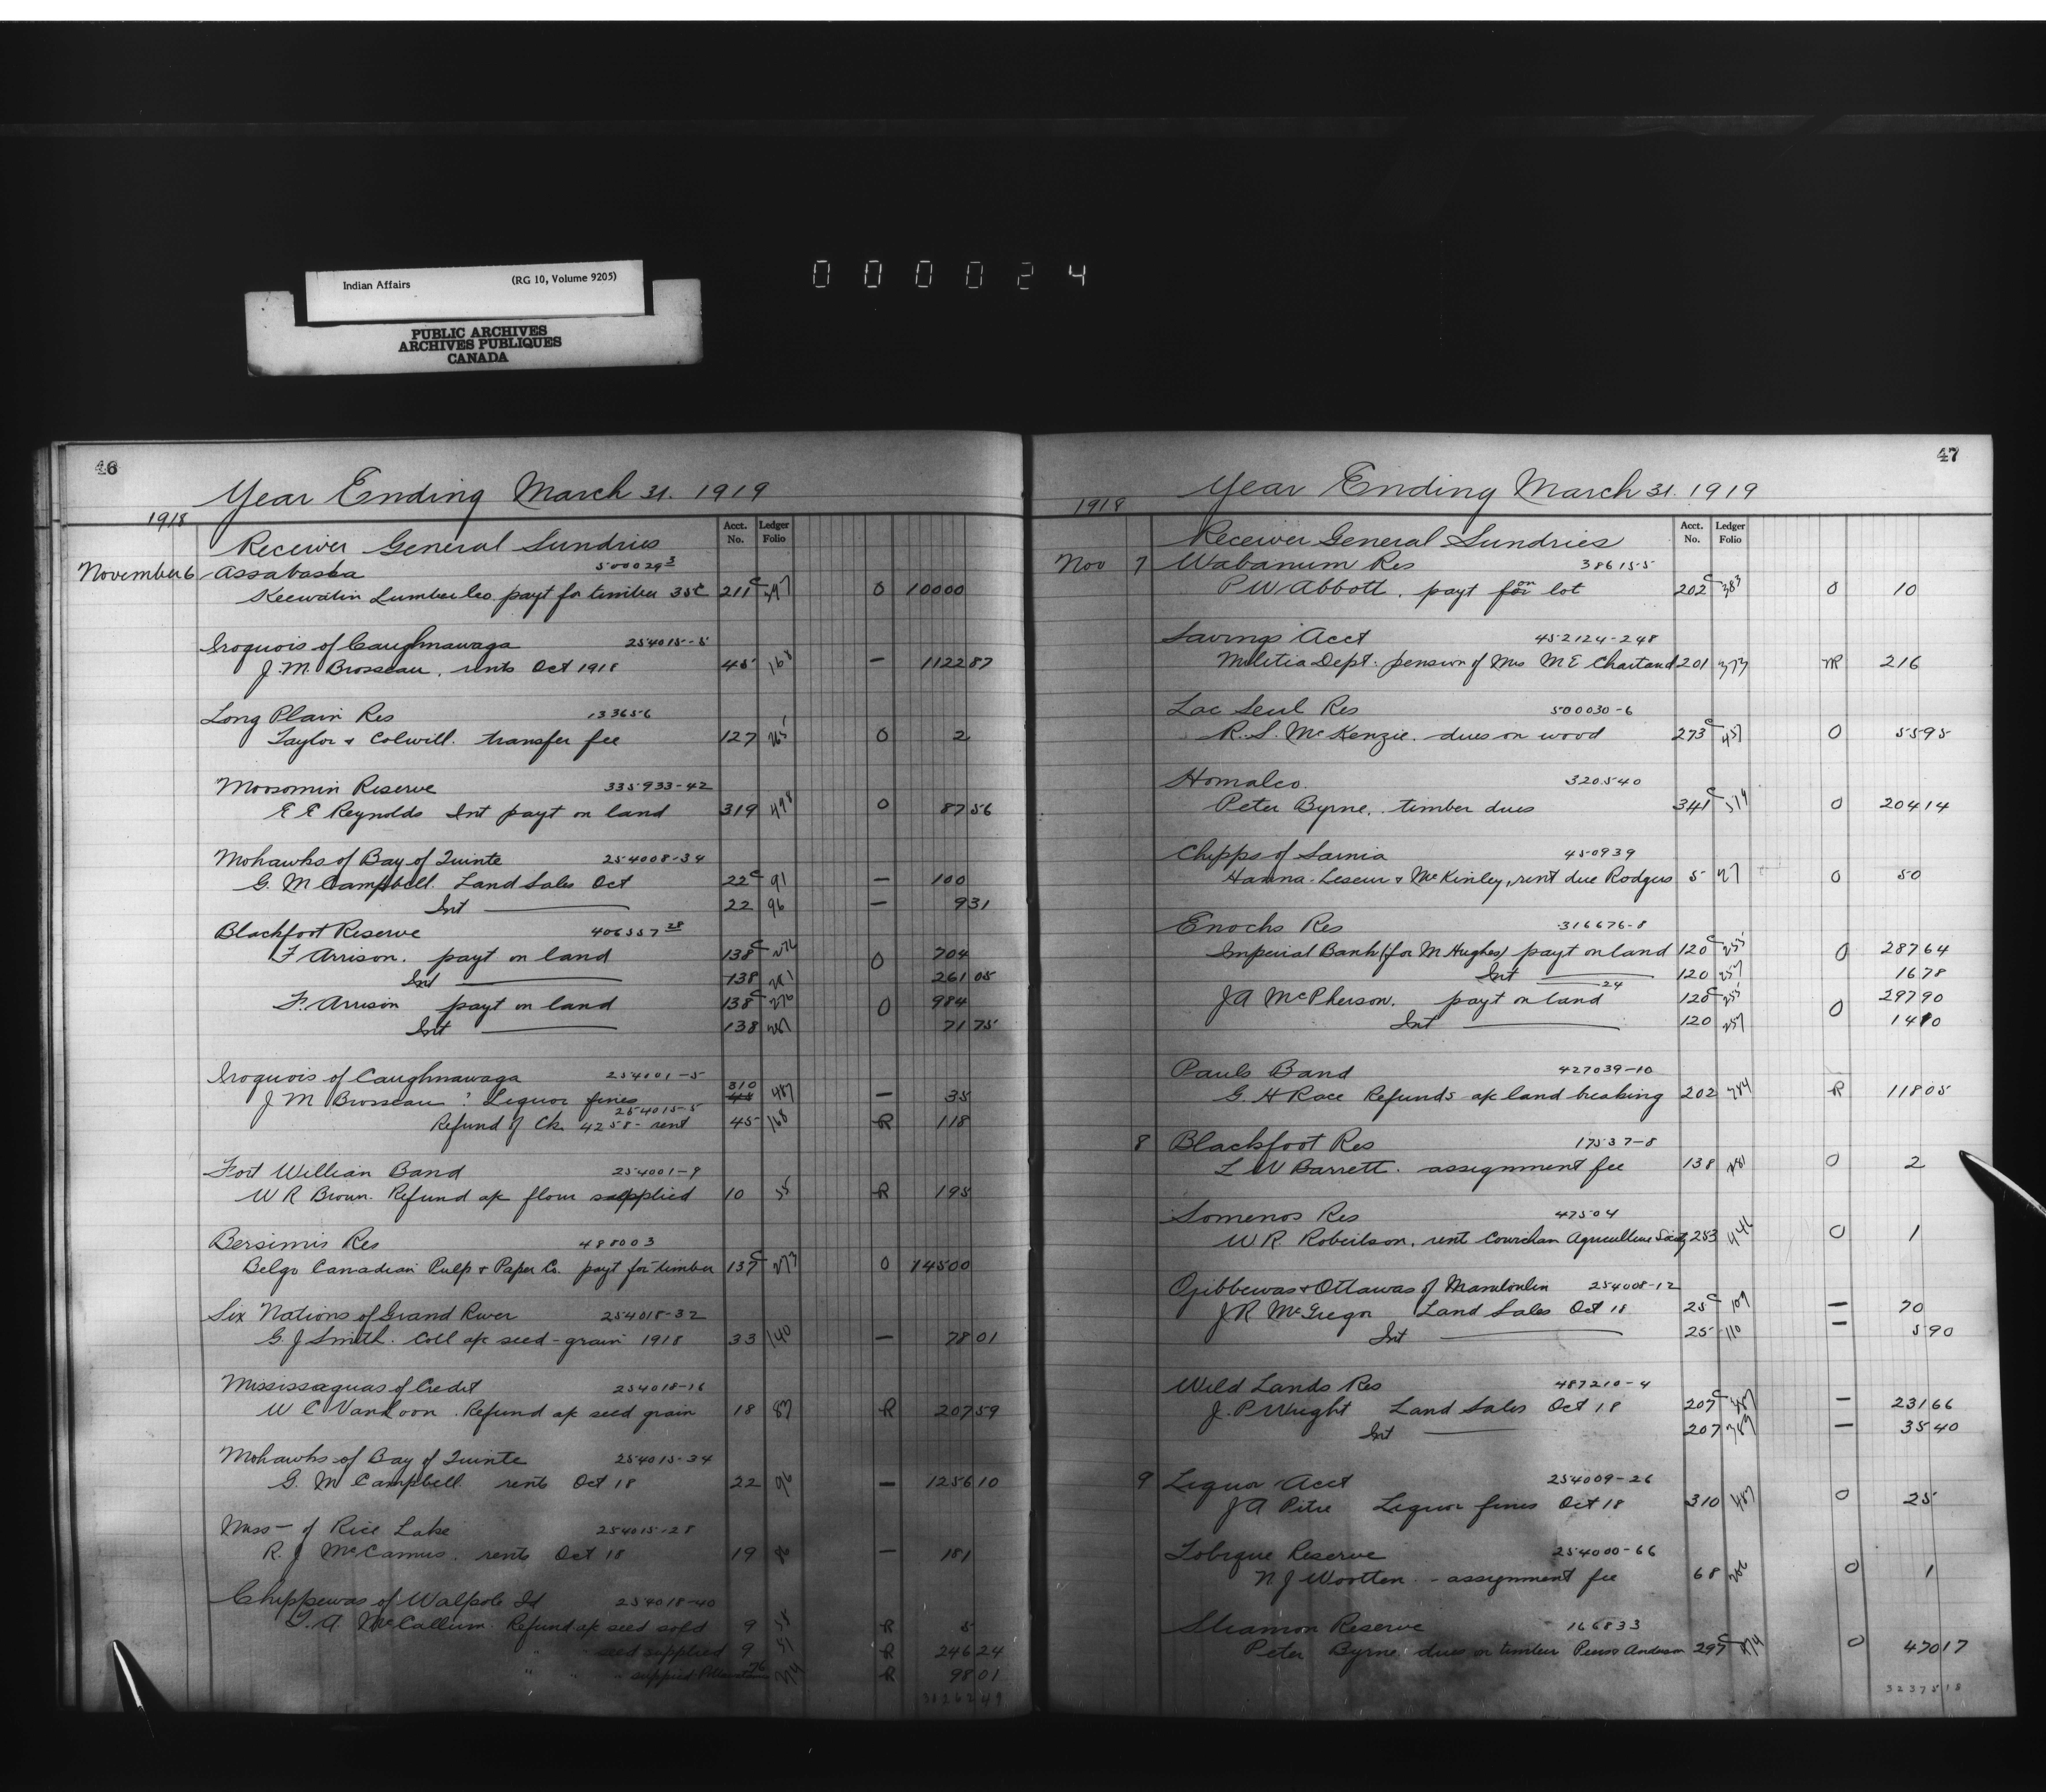 Indian Affairs (RG 10, Volume 9205)
PUBLIC ARCHIVES
ARCHIVES PUBLIQUES
CANADA
000024
46
Year Ending March 31. 1919
1918
Acct. No. Ledger Folio
Receiver General Sundries
November 6 Assabaska 500029-3
Keewatin Lumber Co. payt for timber 35c 211c O 10000
Iroquois of Caughnawaga 254015-5
J. M. Brosseau, rents Oct 1918 45 168 — 1122 87
Long Plain Res 133656
Taylor & Colwill. transfer fee 127 265 O 2
Moosomin Reserve 335933-42
E E Reynolds Int payt on land 319 498 O 87 56
Mohawks of Bay of Quinte 254008-34
G. M Campbell. Land Sales Oct 22c 91 — 100
Int 22 96 — 9 31
Blackfoot Reserve 406557-28
F Arrison. payt on land 138c 276 O 704
Int 138 281 261 05
F. Arrison payt on land 138c 276 O 984
Int 138 281 71 75
Iroquois of Caughnawaga 254101-5
J M Brosseau : Liquor fines 310 487 — 35
254015-5
Refund of Ck. 4258- rent 45 168 R 118
Fort William Band 254001-9
W R Brown. Refund a/c flour supplied 10 55 R 195
Bersimis Res 488003
Belgo Canadian Pulp & Paper Co. payt for timber 137c 273 O 14500
Six Nations of Grand River 254018-32
G. J Smith. Coll a/c seed-grain 1918 33 140 — 78 01
Mississaguas of Credit 254018-16
W C VanLoon. Refund a/c seed grain 18 87 R 207 59
Mohawks of Bay of Quinte 254015-34
G. M Campbell. rents Oct 18 22 96 — 1256 10
Miss— of Rice Lake 254015-28
R. J McCamus. rents Oct 18 19 — 181
Chippewas of Walpole Id 254018-40
T. A McCallum. Refund a/c seed sold 9 R 5
" " seed supplied 9 51 R 246 24
" " " supplied 76 274 R 98 01
31262 49
47
Year Ending March 31. 1919
1918
Acct. No. Ledger Folio
Receiver General Sundries
Nov 7 Wabanum Res 386155
P W Abbott. payt on lot 202c 383 O 10
Savings Acct 452124-248
Militia Dept. pension of Mrs M E Chartand 201 373 R 216
Lac Seul Res 500030-6
R. S. McKenzie. dues on wood 273c 457 O 55 95
Homalco. 320540
Peter Byrne. timber dues 341c 519 O 204 14
Chipps of Sarnia 450939
Hanna. Leseur & McKinley, rent due Rodgers 5 27 O 50
Enochs Res 316676-8
Imperial Bank (for M Hughes) payt on land 120c 255 O 287 64
Int 120 257 16 78
24
J A McPherson. payt on land 120c 255 O 297 90
Int 120 257 14 10
Pauls Band 427039-10
G. H Race Refunds a/c land breaking 202 384 R 118 05
8 Blackfoot Res 17537-8
L W Barrett. assignment fee 138 281 O 2
Somenos Res 47504
W R. Robertson. rent Cowichan Agriculture Society 253 446 O 1
Ojibbewas & Ottawas of Manitoulin 254008-12
J R McGregor Land Sales Oct 18 25c 109 — 70
Int 25 110 — 5 90
Wild Lands Res 487210-4
J. P Wright Land Sales Oct 18 207c 387 — 231 66
Int 207 389 — 35 40
9 Liquor Acct 254009-26
J A Pitre Liquor fines Oct 18 310 487 O 25
Tobique Reserve 254000-66
N. J Wootten - assignment fee 68 206 O 1
Sliamon Reserve 166833
Peter Byrne dues on timber Anderson 297c 474 O 470 17
32375 18